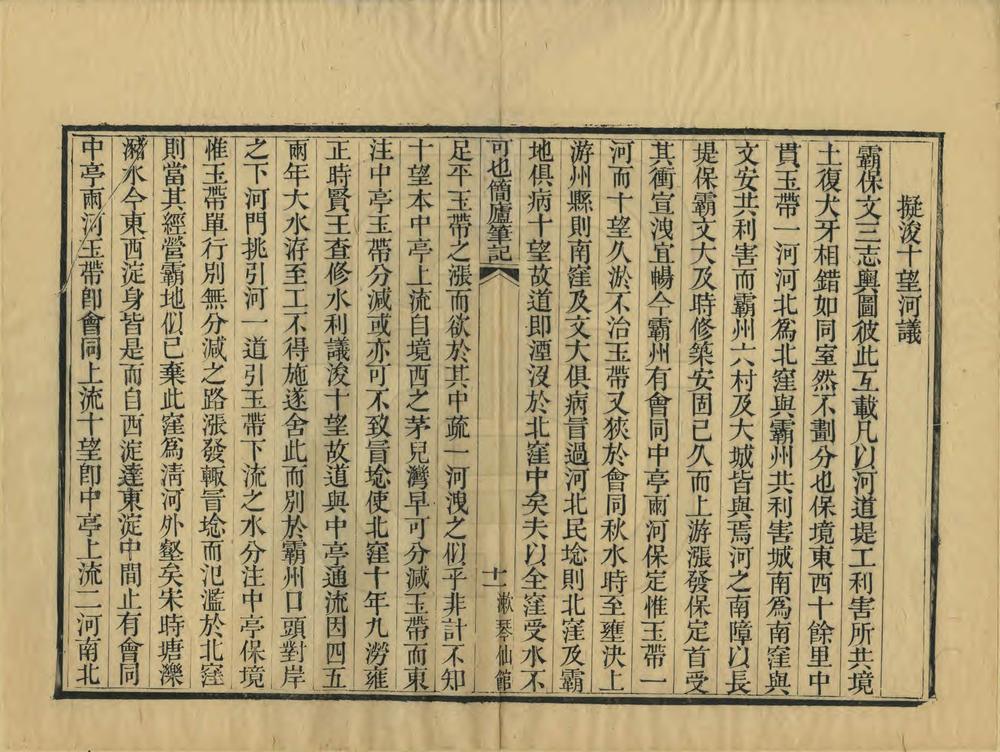 擬浚十望河議
霸保文三志輿圖彼此互載凡以河道堤工利害所共境
土復犬牙相錯如同室然不劃分也保境東西十餘里中
貫玉帶一河河北爲北窪與霸州共利害城南爲南窪與
文安共利害而霸州六村及大城皆與焉河之南障以長
堤保霸文大及時修築安固已久而上游漲發保定首受
其衝宣洩宜暢今霸州有會同中亭兩河保定惟玉帶一
河而十望久淤不治玉帶又狹於會同秋水時至壅決上
游州縣則南窪及文大俱病冒過河北民埝則北窪及霸
地俱病十望故道即湮沒於北窪中矣夫以全窪受水不
可也簡廬筆記
十一
漱琴仙館
足平玉帶之漲而欲於其中疏一河洩之似乎非計不知
十望本中亭上流自境西之茅兒灣早可分減玉帶而東
注中亭玉帶分減或亦可不致冒埝使北窪十年九澇雍
正時賢王查修水利議浚十望故道與中亭通流因四五
兩年大水洊至工不得施遂舍此而別於霸州口頭對岸
之下河門挑引河一道引玉帶下流之水分注中亭保境
惟玉帶單行別無分減之路漲發輒冒埝而氾濫於北窪
則當其經營霸地似已棄此窪爲淸河外壑矣宋時塘濼
瀦水今東西淀身皆是而自西淀達東淀中間止有會同
中亭兩河玉帶卽會同上流十望卽中亭上流二河南北